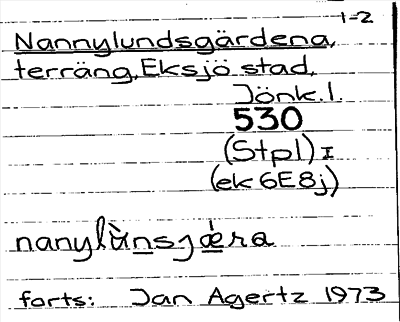 1-2
Nannylundsgärdena,
terräng, Eksjö stad,
Jönk.l.
530
(Stpl) I
(ek 6E8j)
nanylùnsjǽra
forts: Jan Agertz 1973